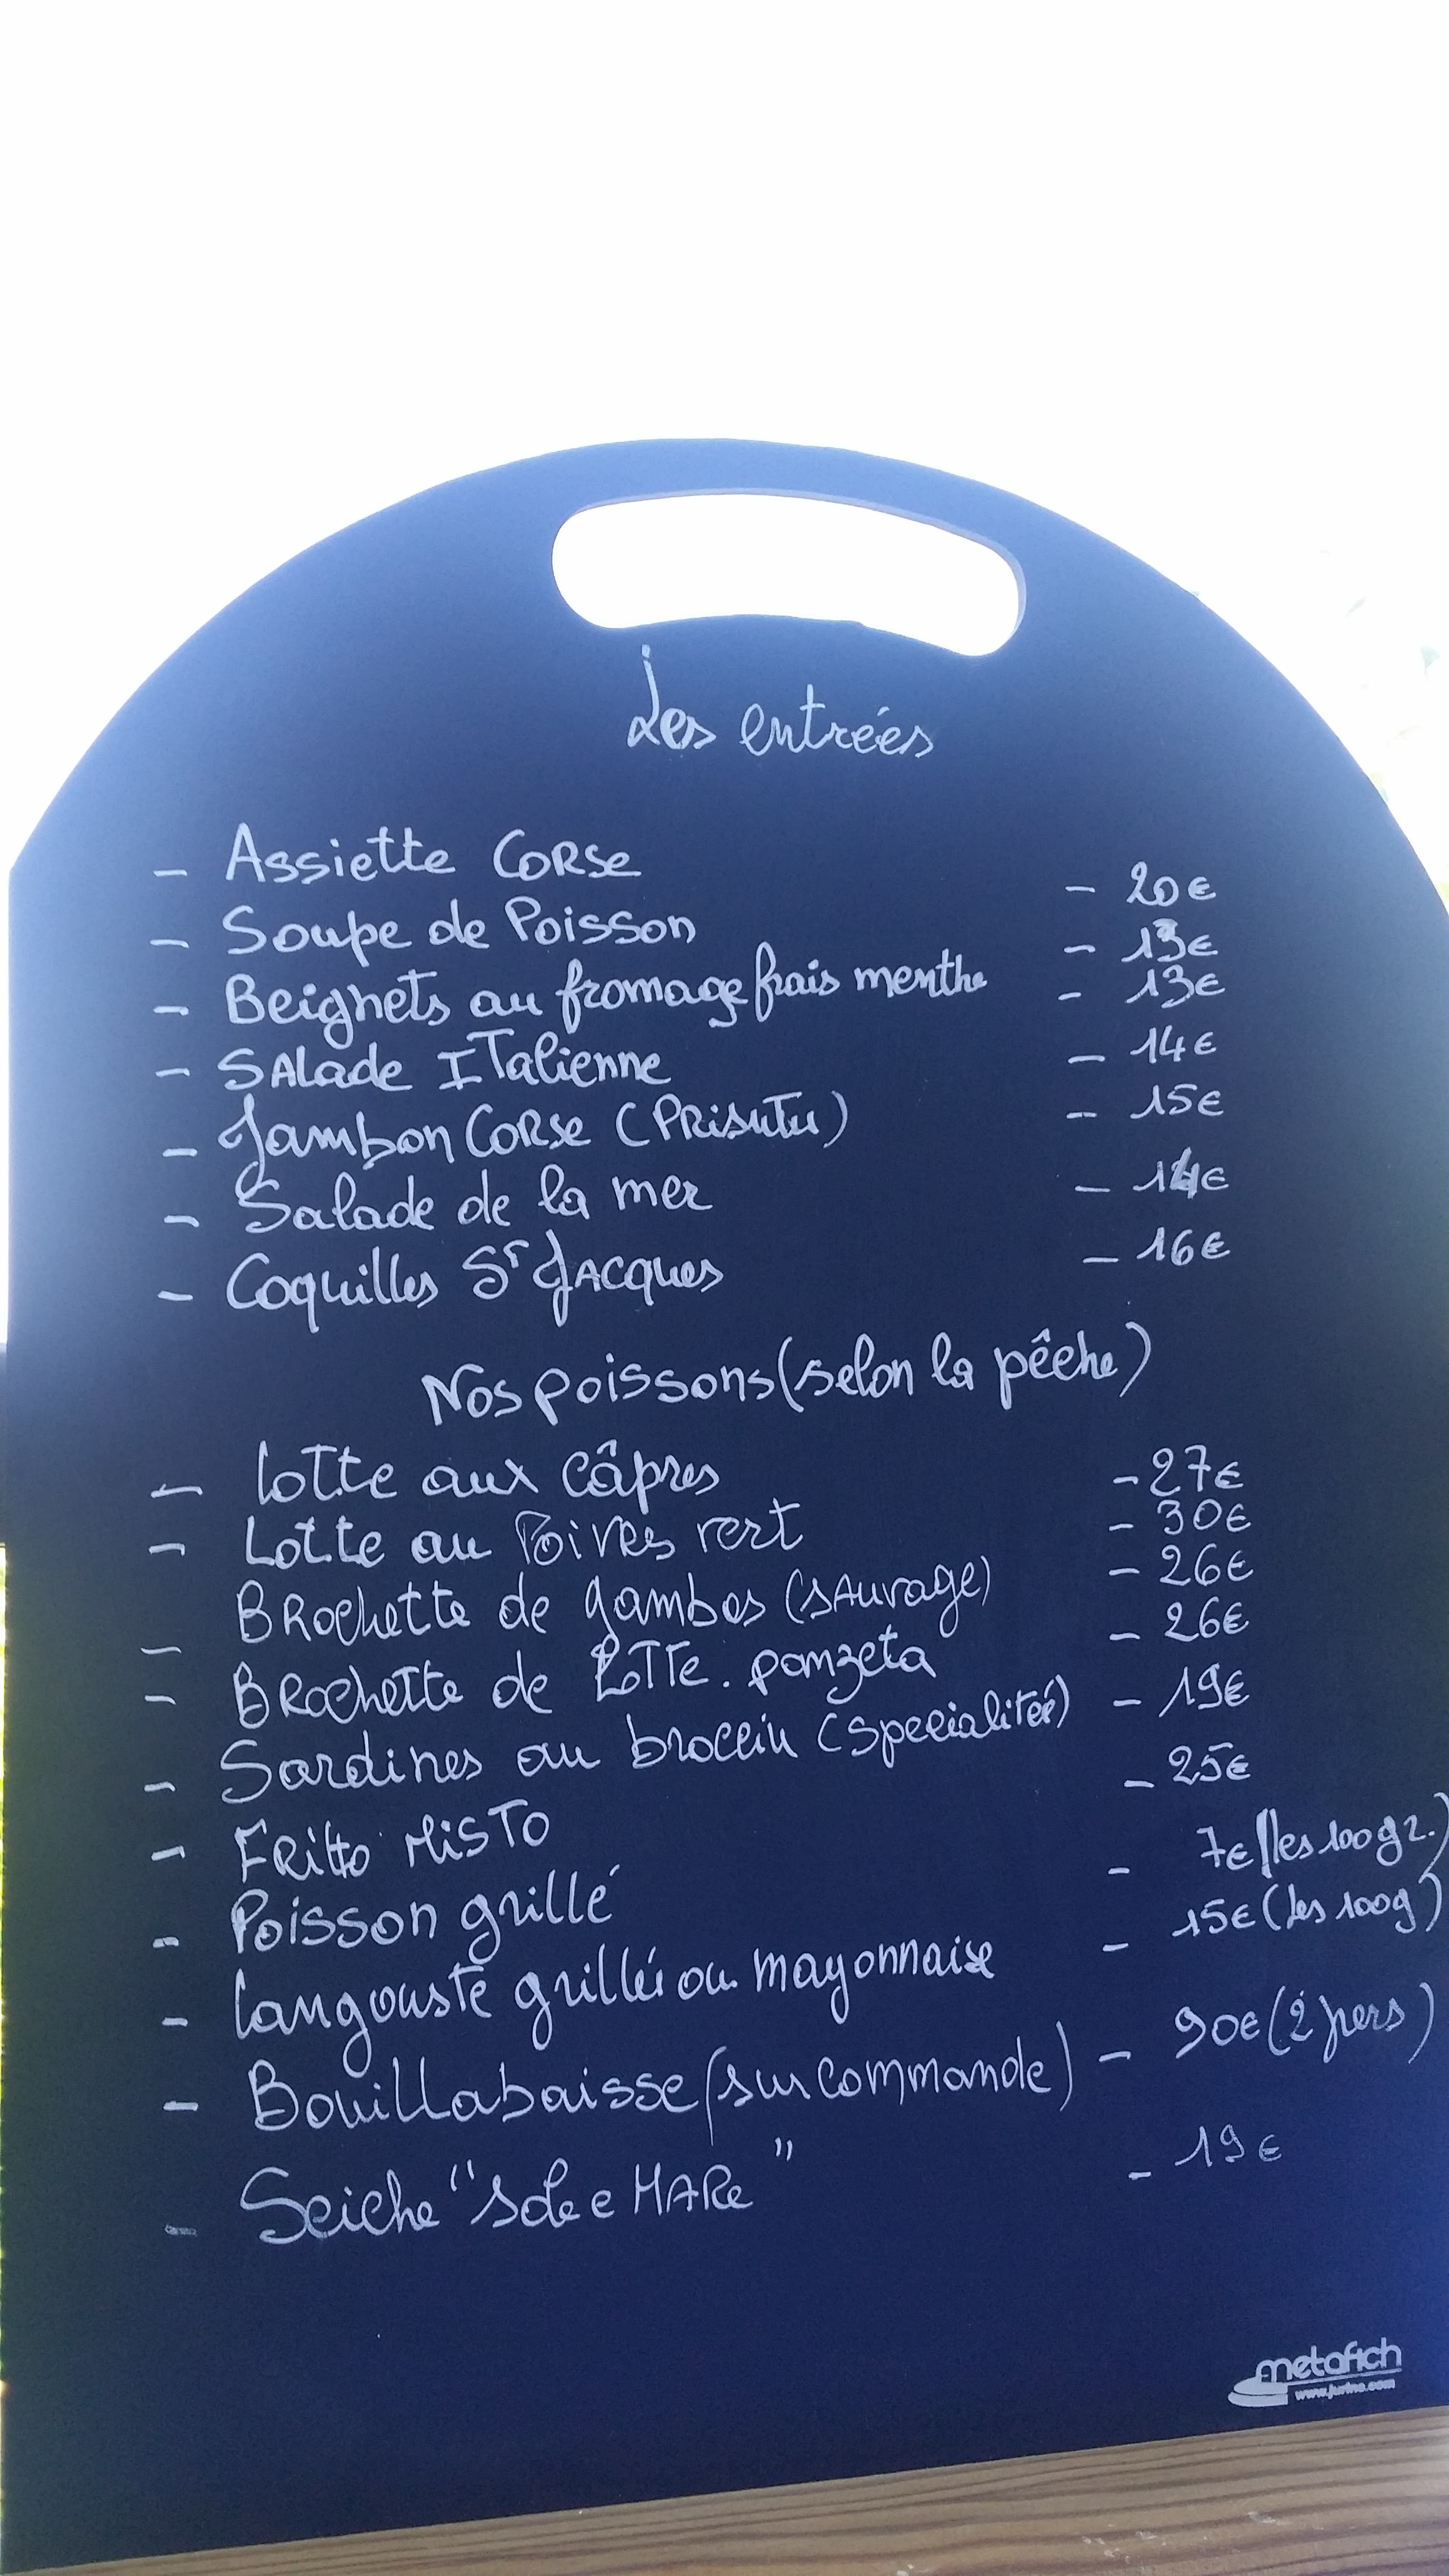 Les entrées
- Assiette CORSE - 20€
- Soupe de Poisson - 13€
- Beignets au fromage frais menthe - 13€
- SAlade ITalienne - 14€
- Jambon CORSE (PRisuTu) - 15€
- Salade de la mer - 14€
- Coquilles St JAcques - 16€
Nos poissons (selon la pêche)
- lotte aux câpres - 27€
- Lotte au Poivres vert - 30€
- BRochette de gambas (sAuvage) - 26€
- BRochette de LOTTe. panzeta - 26€
- Sardines au brocciu (specialitée) - 19€
- FRitto MisTO - 25€
- Poisson grillé - 7€ (les 100gr.)
- langouste grillée ou mayonnaise - 15€ (les 100g)
- Bouillabaisse (sur commande) - 90€ (2 pers)
- Seiche "sole e MARe" - 19€
metafich
www.jurine.com